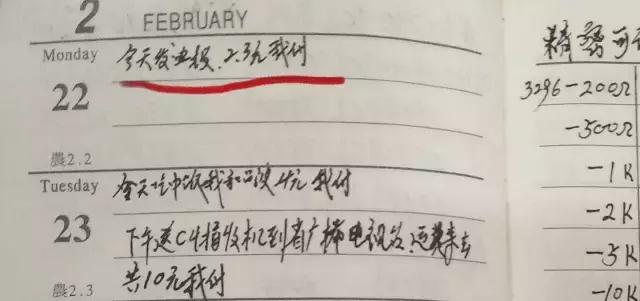 2 FEBRUARY
Monday 今天发电报 2.3元我付
22
農2.2
Tuesday 今天吃中饭我和 4元 我付
23 下午送C4接收机到省广播电视台,运费来去
共10元我付
農2.3
精密可
3296-200Ω
-500Ω
-1K
-2K
-5K
-10K